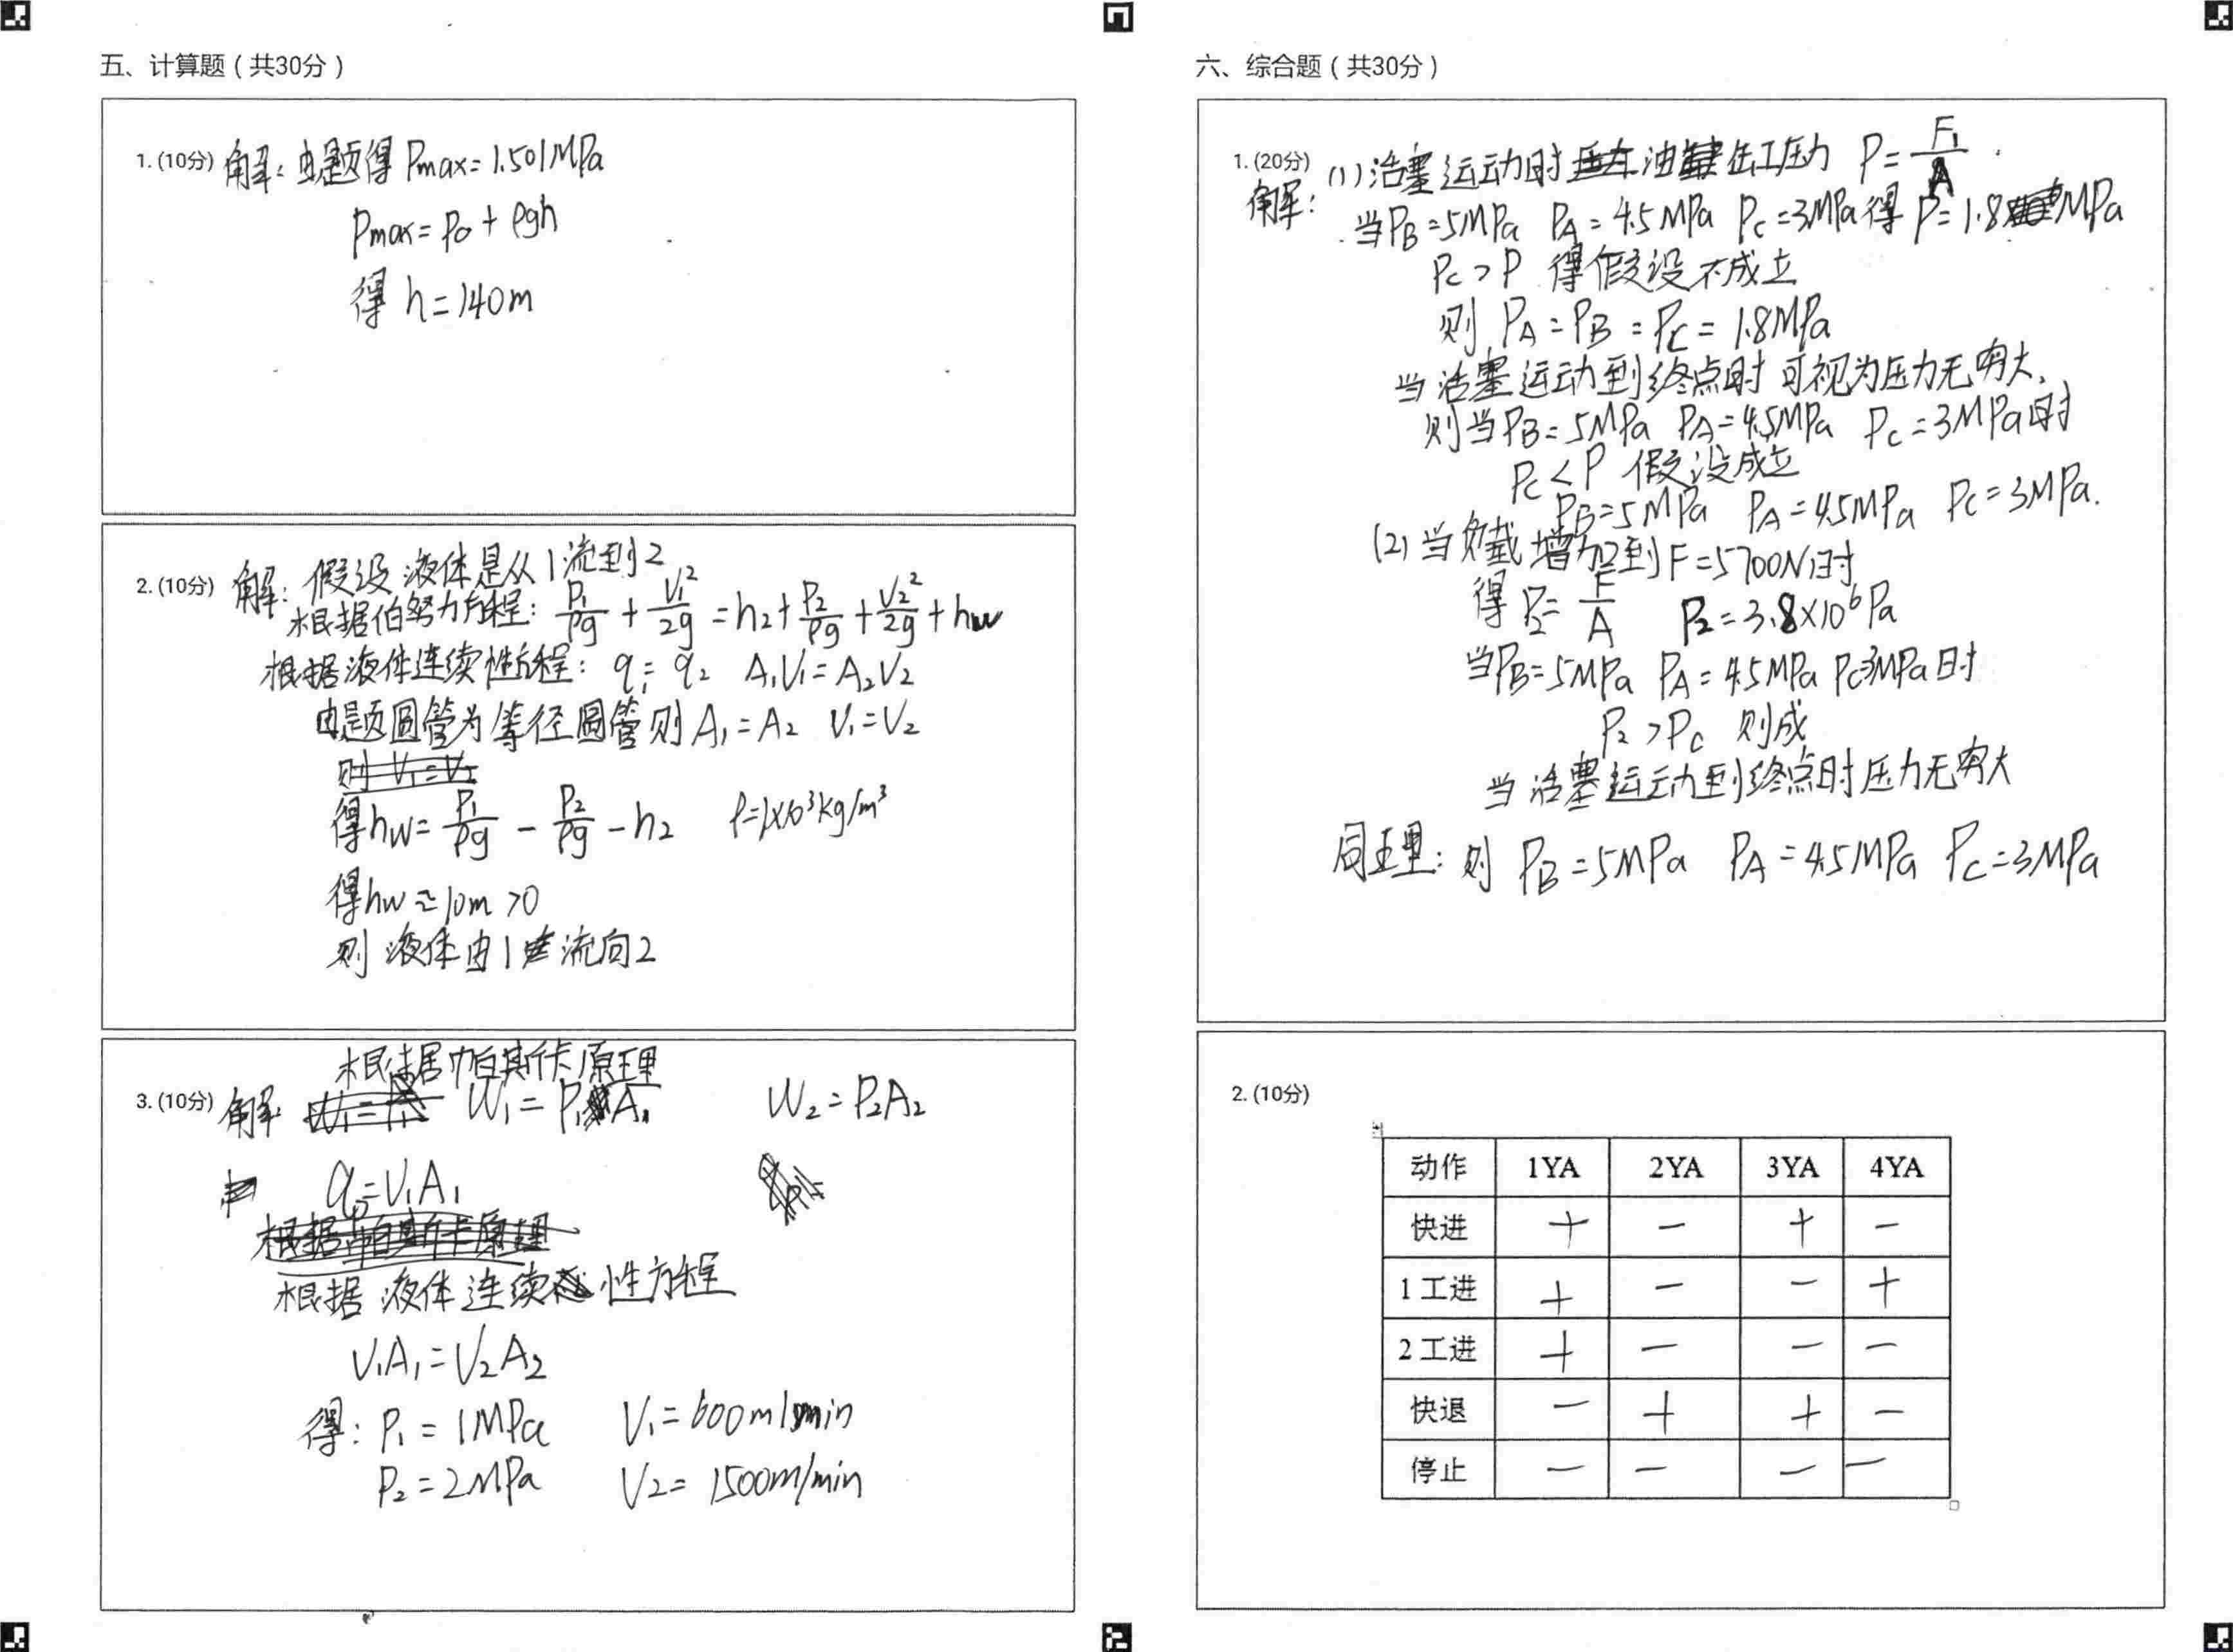 五、计算题（共30分）
1.(10分) 解：由题得 Pmax=1.501MPa
Pmax=P0+ρgh
得 h=140m
2.(10分) 解：假设液体是从1流到2
根据伯努力方程：P1/ρg + V1²/2g = h2 + P2/ρg + V2²/2g + hw
根据液体连续性方程：q1=q2 A1V1=A2V2
由题圆管为等径圆管则A1=A2 V1=V2
则 V1=V2
得hw= P1/ρg - P2/ρg - h2 ρ=1×10³kg/m³
得hw≈10m>0
则液体由1流向2
根据帕斯卡原理
3.(10分) 解: W1=P1A1 W2=P2A2
q=V1A1
根据帕斯卡原理
根据液体连续性方程
V1A1=V2A2
得：P1=1MPa V1=600m/min
P2=2MPa V2=1500m/min
六、综合题（共30分）
1.(20分) (1)活塞运动时油缸工压力 P=F1/A
解： 当PB=5MPa PA=4.5MPa PC=3MPa得P=1.8MPa
PC>P 得假设不成立
则 PA=PB=PC=1.8MPa
当活塞运动到终点时可视为压力无穷大,
则当PB=5MPa PA=4.5MPa PC=3MPa时
PC<P 假设成立
PB=5MPa PA=4.5MPa PC=3MPa.
(2)当负载增加到F=5700N时
得P2=F/A P2=3.8×10⁶Pa
当PB=5MPa PA=4.5MPa PC=3MPa时
P2>PC 则成
当活塞运动到终点时压力无穷大
同理：则 PB=5MPa PA=4.5MPa PC=3MPa
2.(10分)
动作 1YA 2YA 3YA 4YA
快进 + — + —
1工进 + — — +
2工进 + — — —
快退 — + + —
停止 — — — —